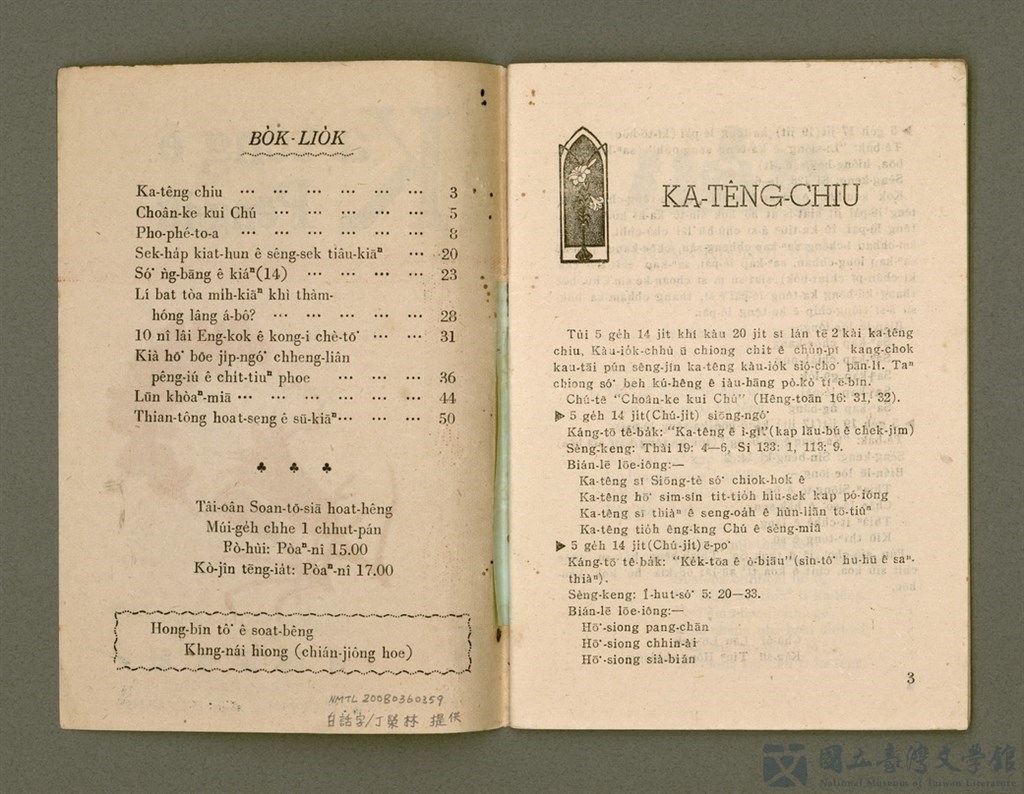 BO̍K-LIO̍K
Ka-têng chiu ··· ··· ··· ··· ··· ··· 3
Choân-ke kui Chú ··· ··· ··· ··· ··· 5
Pho-phé-to-a ··· ··· ··· ··· ··· ··· 8
Sek-ha̍p kiat-hun ê sêng-sek tiâu-kiāⁿ ··· 20
Só͘ ǹg-bāng ê kiáⁿ(14) ··· ··· ··· ··· 23
Lí bat tòa mih-kiāⁿ khì thàm-
hóng lâng á-bô? ··· ··· ··· ··· ··· 28
10 nî lâi Eng-kok ê kong-i chè-tō͘ ··· ··· 31
Kià hō͘ bōe ji̍p-ngó͘ chheng-liân
pêng-iú ê chi̍t-tiuⁿ phoe ··· ··· ··· 36
Lūn khòaⁿ-miā ··· ··· ··· ··· ··· ··· 44
Thian-tông hoat-seng ê sū-kiāⁿ ··· ··· ··· 50
♣ ♣ ♣
Tâi-oân Soan-tō-siā hoat-hêng
Múi-ge̍h chhe 1 chhut-pán
Pò-hùi: Pòaⁿ-nî 15.00
Kò-jîn tēng-ia̍t: Pòaⁿ-nî 17.00
Hong-bīn tô͘ ê soat-bêng
Khng-nái hiong (chián-jiông hoe)
NMTL 20080360359
白話字/丁榮林 提供
KA-TÊNG-CHIU
Tùi 5 ge̍h 14 ji̍t khí kàu 20 ji̍t sī lán tē 2 kài ka-têng
chiu, Kàu-io̍k-chhù ū chiong chit ê chún-pī kang-chok
kau-tāi pún sêng-jîn ka-têng kàu-io̍k sió-cho͘ pān-lí. Taⁿ
chiong só͘ beh kú-hêng ê iàu-hāng pò-kò tī ē-bīn.
Chú-tê "Choân-ke kui Chú" (Hêng-toān 16: 31, 32).
▶ 5 ge̍h 14 ji̍t(Chú-ji̍t) siōng-ngó͘
Káng-tō tê-ba̍k: "Ka-têng ê ì-gī"(kap lāu-bú ê chek-jīm)
Sèng-keng: Thài 19: 4—6, Si 133: 1, 113: 9.
Bián-lē lōe-iông:—
Ka-têng sī Siōng-tè só͘ chiok-hok ê
Ka-têng hō͘ sim-sîn tit-tio̍h hiu-sek kap pó-iōng
Ka-têng sī thiàⁿ ê seng-oa̍h ê hùn-liān tō-tiûⁿ
Ka-têng tio̍h êng-kng Chú ê sèng-miâ
▶ 5 ge̍h 14 ji̍t(Chú-ji̍t) ē-po͘
Káng-tō tê-ba̍k: "Kek-tōa ê ò-biāu" (sìn-tô͘ hu-hū ê saⁿ-
thiàⁿ).
Sèng-keng: Í-hut-só͘ 5: 20—33.
Bián-lē lōe-iông:—
Hō͘-siong pang-chān
Hō͘-siong chhin-ài
Hō͘-siong sià-bián
3
國立臺灣文學館
National Museum of Taiwan Literature